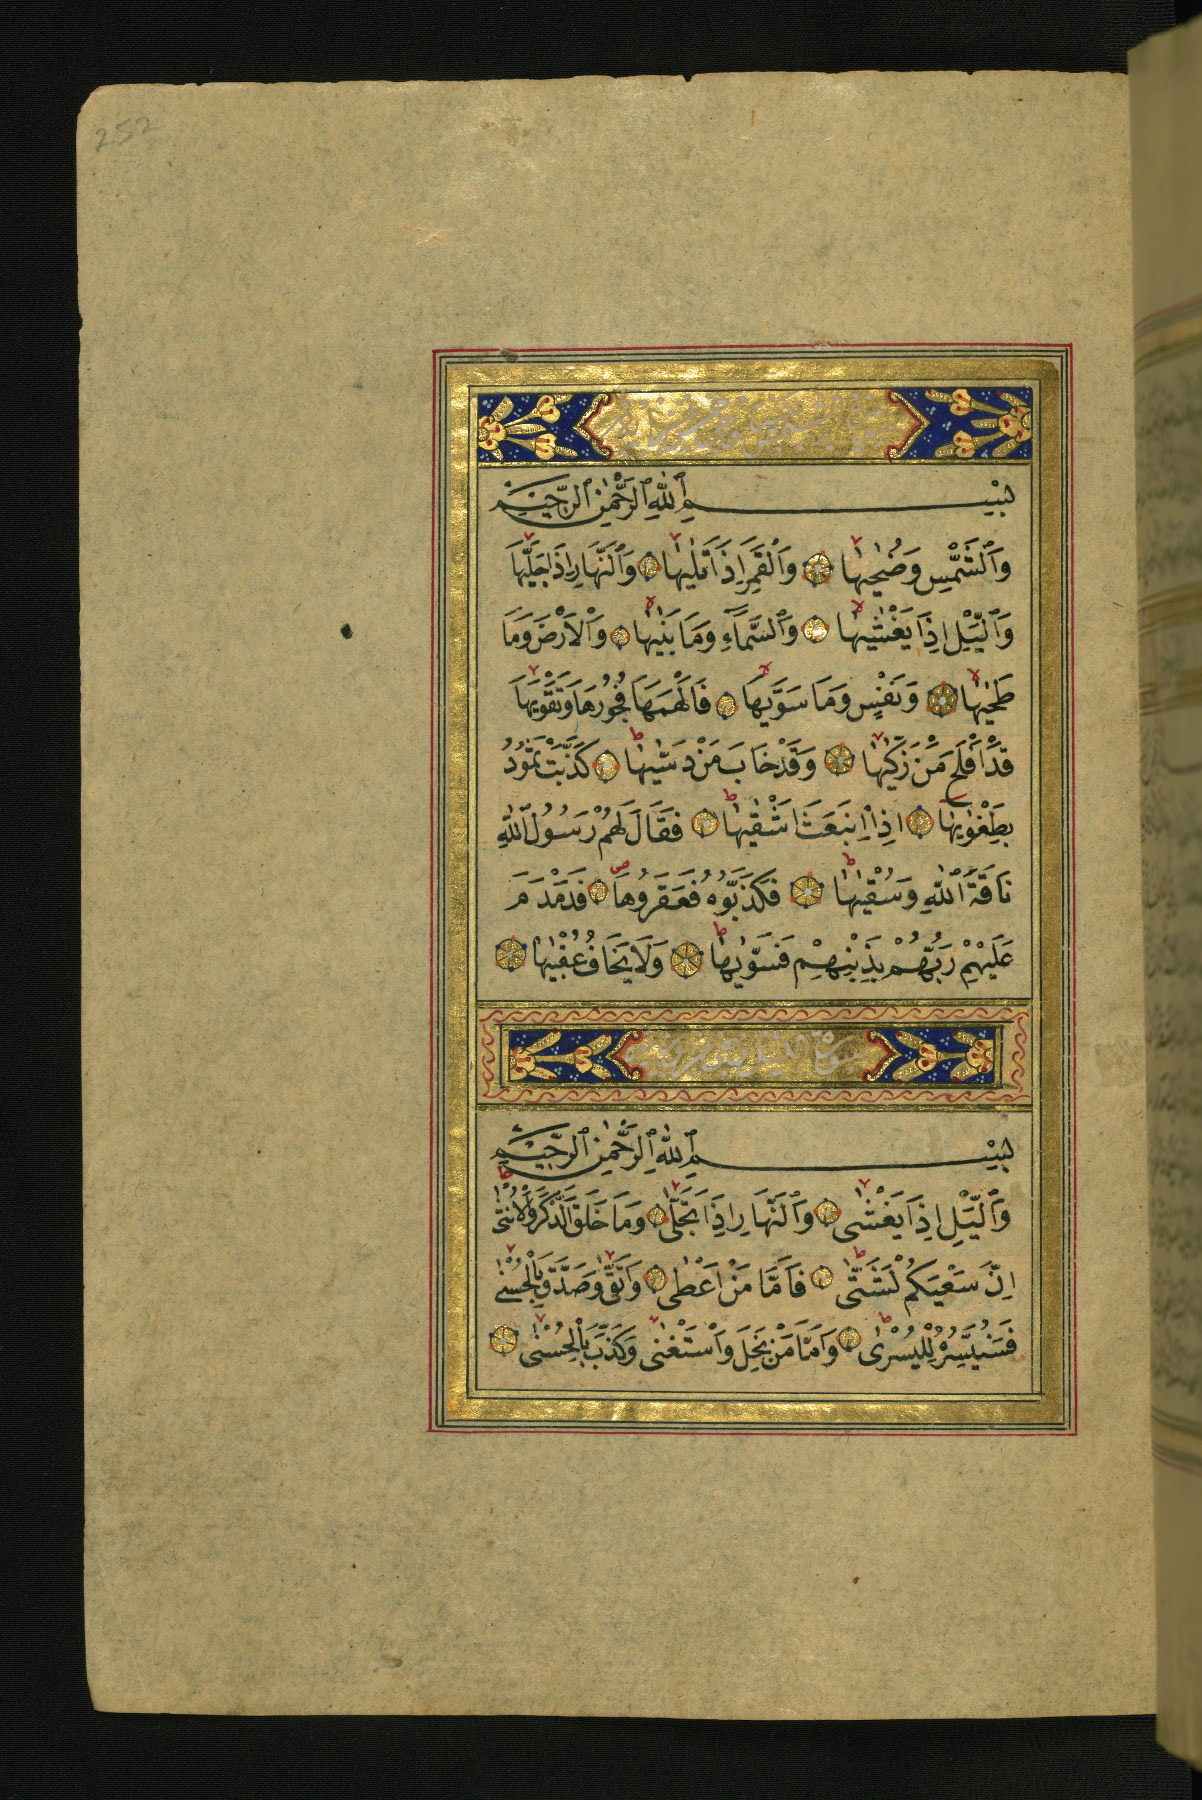 252
بِسْمِ ٱللّٰهِ ٱلرَّحْمٰنِ ٱلرَّحِيمِ
وَٱلشَّمْسِ وَضُحٰيهَا وَٱلْقَمَرِ اِذَا تَلٰيهَا وَٱلنَّهَارِ اِذَا جَلّٰيهَا
وَٱلَّيْلِ اِذَا يَغْشٰيهَا وَٱلسَّمَآءِ وَمَا بَنٰيهَا وَٱلْاَرْضِ وَمَا
طَحٰيهَا وَنَفْسٍ وَمَا سَوّٰيهَا فَاَلْهَمَهَا فُجُورَهَا وَتَقْوٰيهَا
قَدْ اَفْلَحَ مَنْ زَكّٰيهَا وَقَدْ خَابَ مَنْ دَسّٰيهَا كَذَّبَتْ ثَمُودُ
بِطَغْوٰيهَا اِذِ ٱنْبَعَثَ اَشْقٰيهَا فَقَالَ لَهُمْ رَسُولُ ٱللّٰهِ
نَاقَةَ ٱللّٰهِ وَسُقْيٰهَا فَكَذَّبُوهُ فَعَقَرُوهَا فَدَمْدَمَ
عَلَيْهِمْ رَبُّهُمْ بِذَنْبِهِمْ فَسَوّٰيهَا وَلَا يَخَافُ عُقْبٰيهَا
سورة الليل
بِسْمِ ٱللّٰهِ ٱلرَّحْمٰنِ ٱلرَّحِيمِ
وَٱلَّيْلِ اِذَا يَغْشٰى وَٱلنَّهَارِ اِذَا تَجَلّٰى وَمَا خَلَقَ ٱلذَّكَرَ وَٱلْاُنْثٰى
اِنَّ سَعْيَكُمْ لَشَتّٰى فَاَمَّا مَنْ اَعْطٰى وَٱتَّقٰى وَصَدَّقَ بِٱلْحُسْنٰى
فَسَنُيَسِّرُهُ لِلْيُسْرٰى وَاَمَّا مَنْ بَخِلَ وَٱسْتَغْنٰى وَكَذَّبَ بِٱلْحُسْنٰى